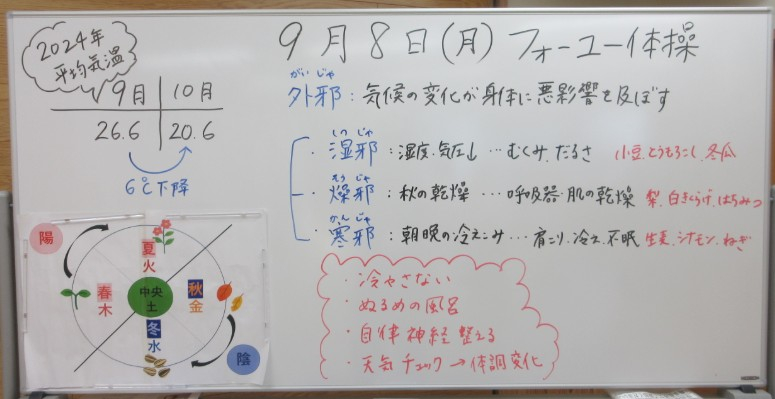 2024年
平均気温
9月 10月
26.6 20.6
6℃下降
9月8日(月)フォーユー体操
がい じゃ
外邪:気候の変化が身体に悪影響を及ぼす
しつ じゃ
・湿邪:湿度、気圧↓…むくみ、だるさ 小豆、とうもろこし、冬瓜
そう じゃ
・燥邪:秋の乾燥…呼吸器・肌の乾燥 梨、白きくらげ、はちみつ
かん じゃ
・寒邪:朝晩の冷えこみ…肩こり、冷え、不眠 生姜、シナモン、ねぎ
・冷やさない
・ぬるめの風呂
・自律神経整える
・天気チェック→体調変化
陽
夏
火
春
木
中央
土
秋
金
冬
水
陰